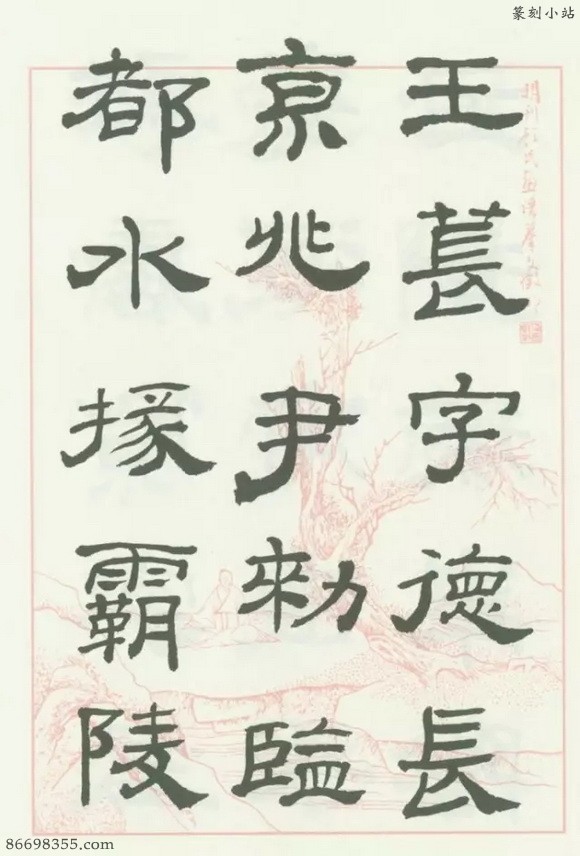 篆刻小站
王萇字德長
亰兆尹勑監
都水掾霸陵
86698355.com